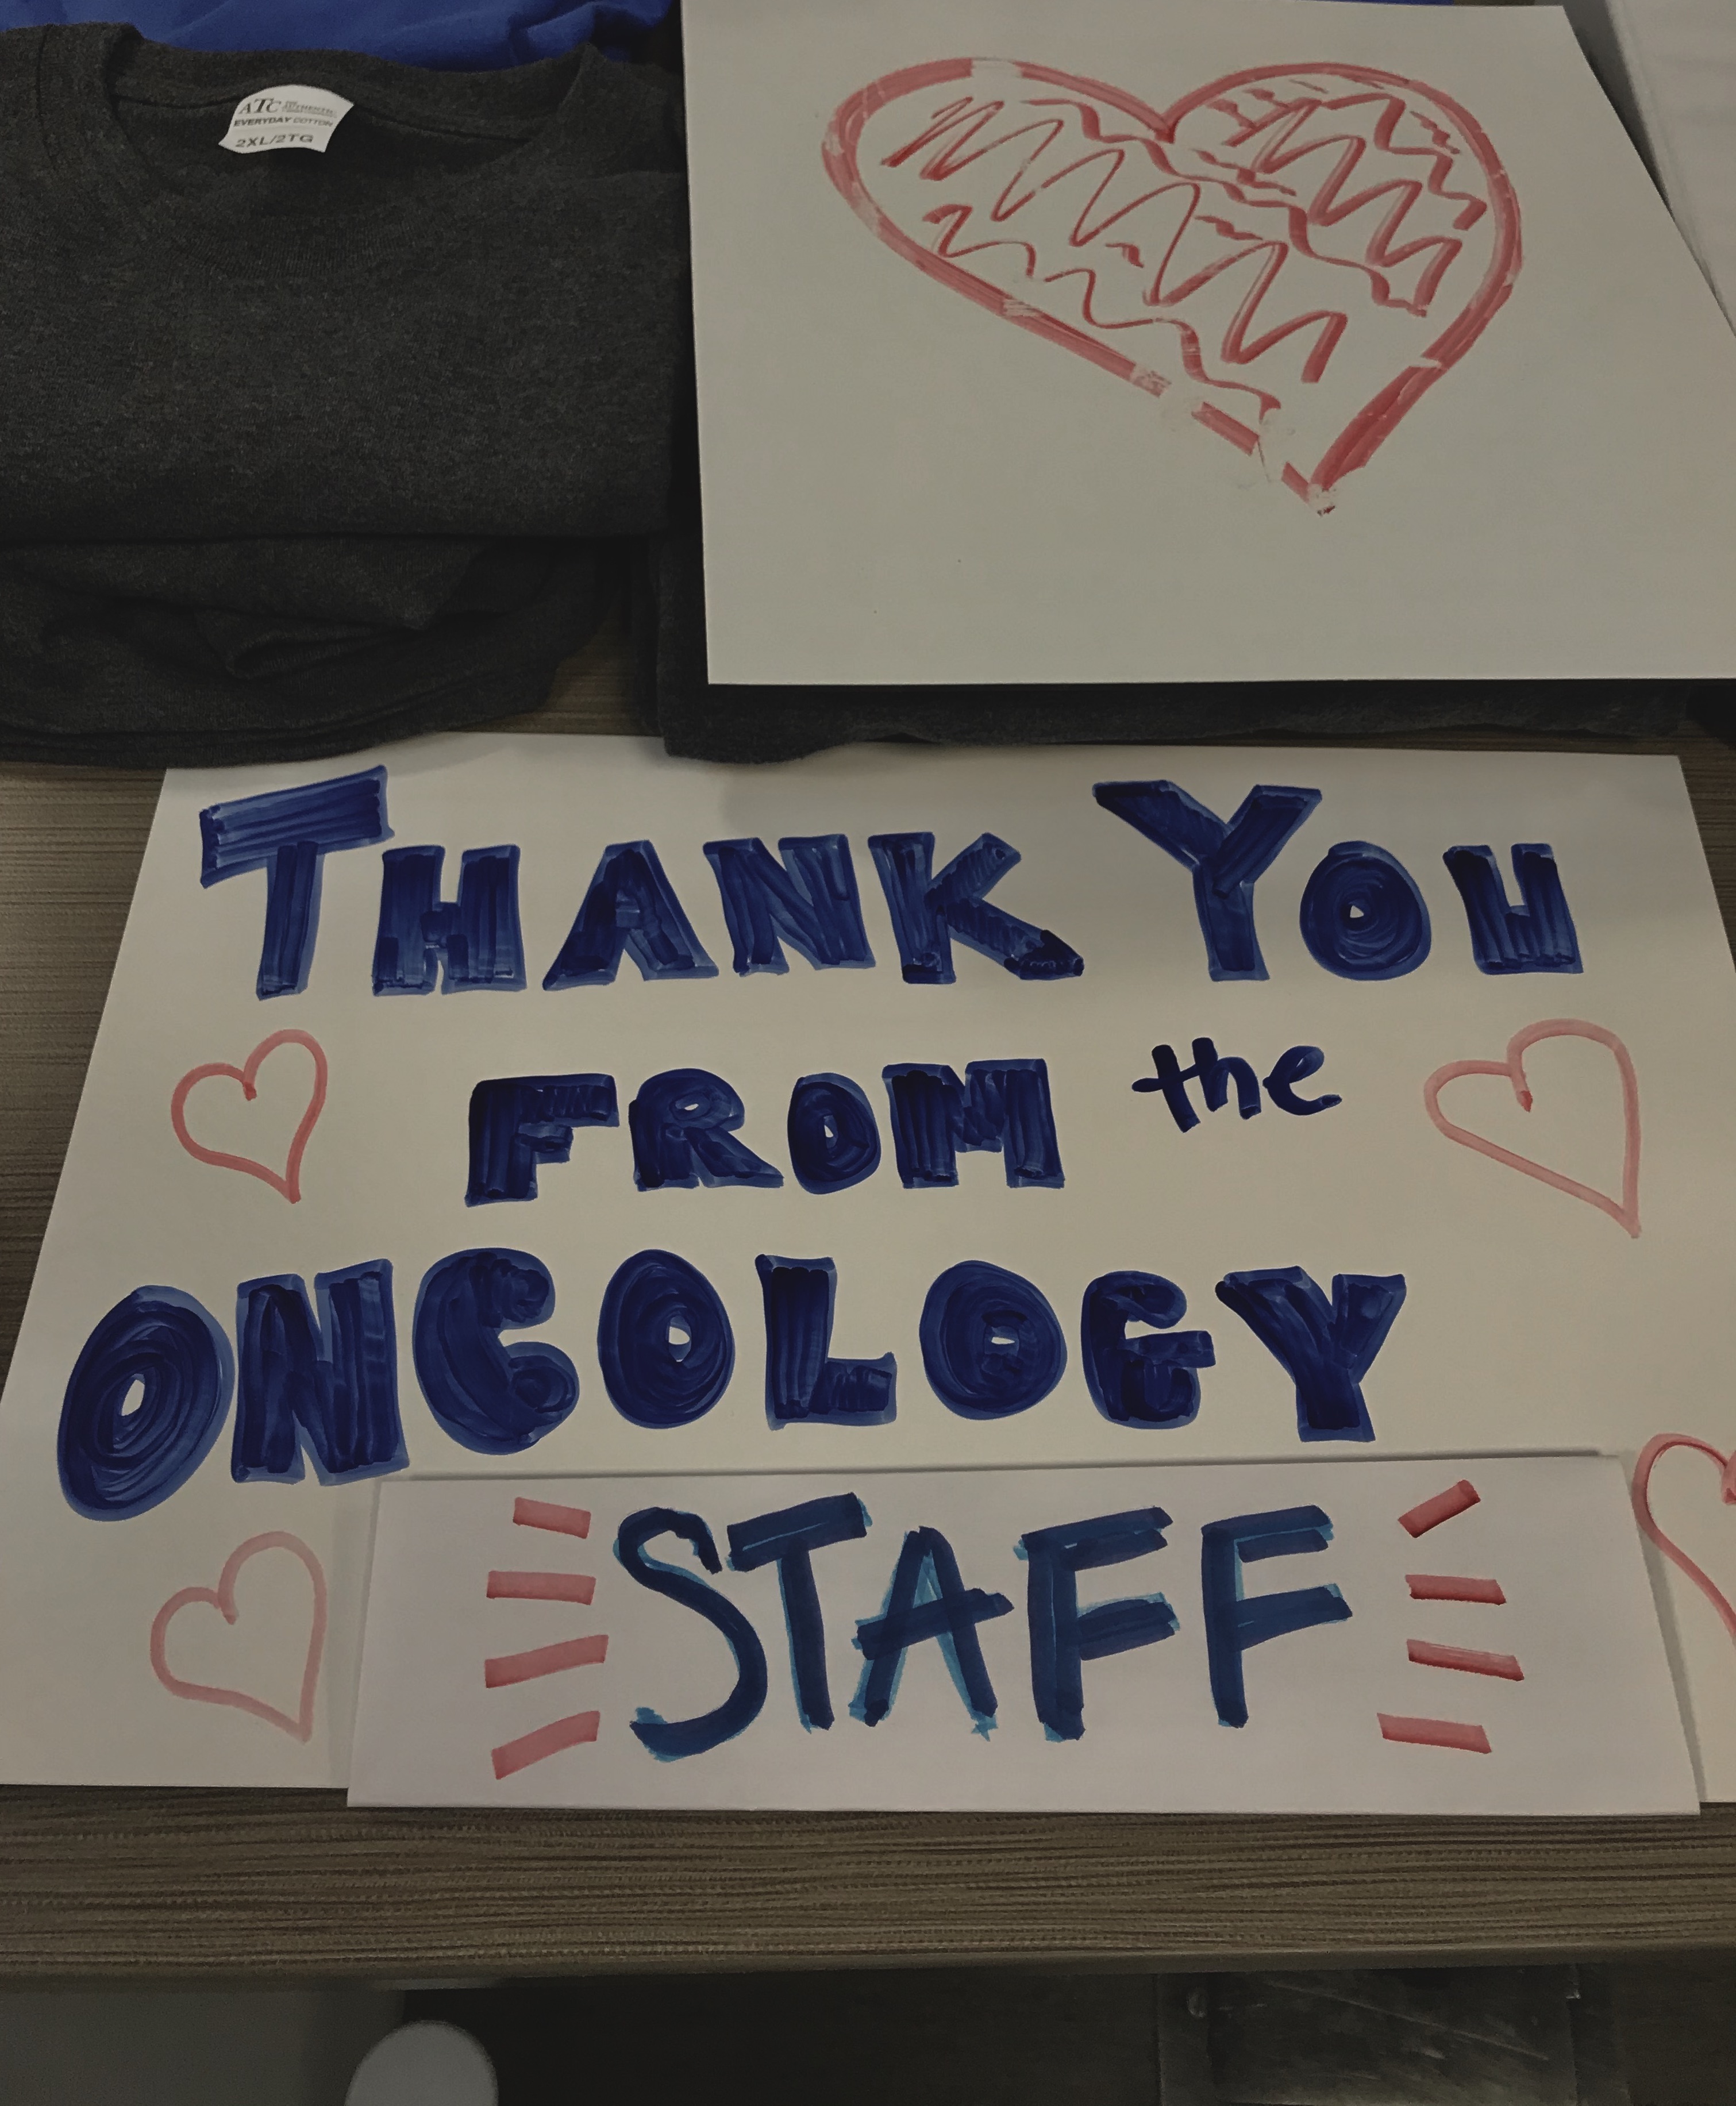 ATC THE AUTHENTIC
EVERYDAY COTTON
2XL/2TG
THANK YOU
FROM the
ONCOLOGY
STAFF